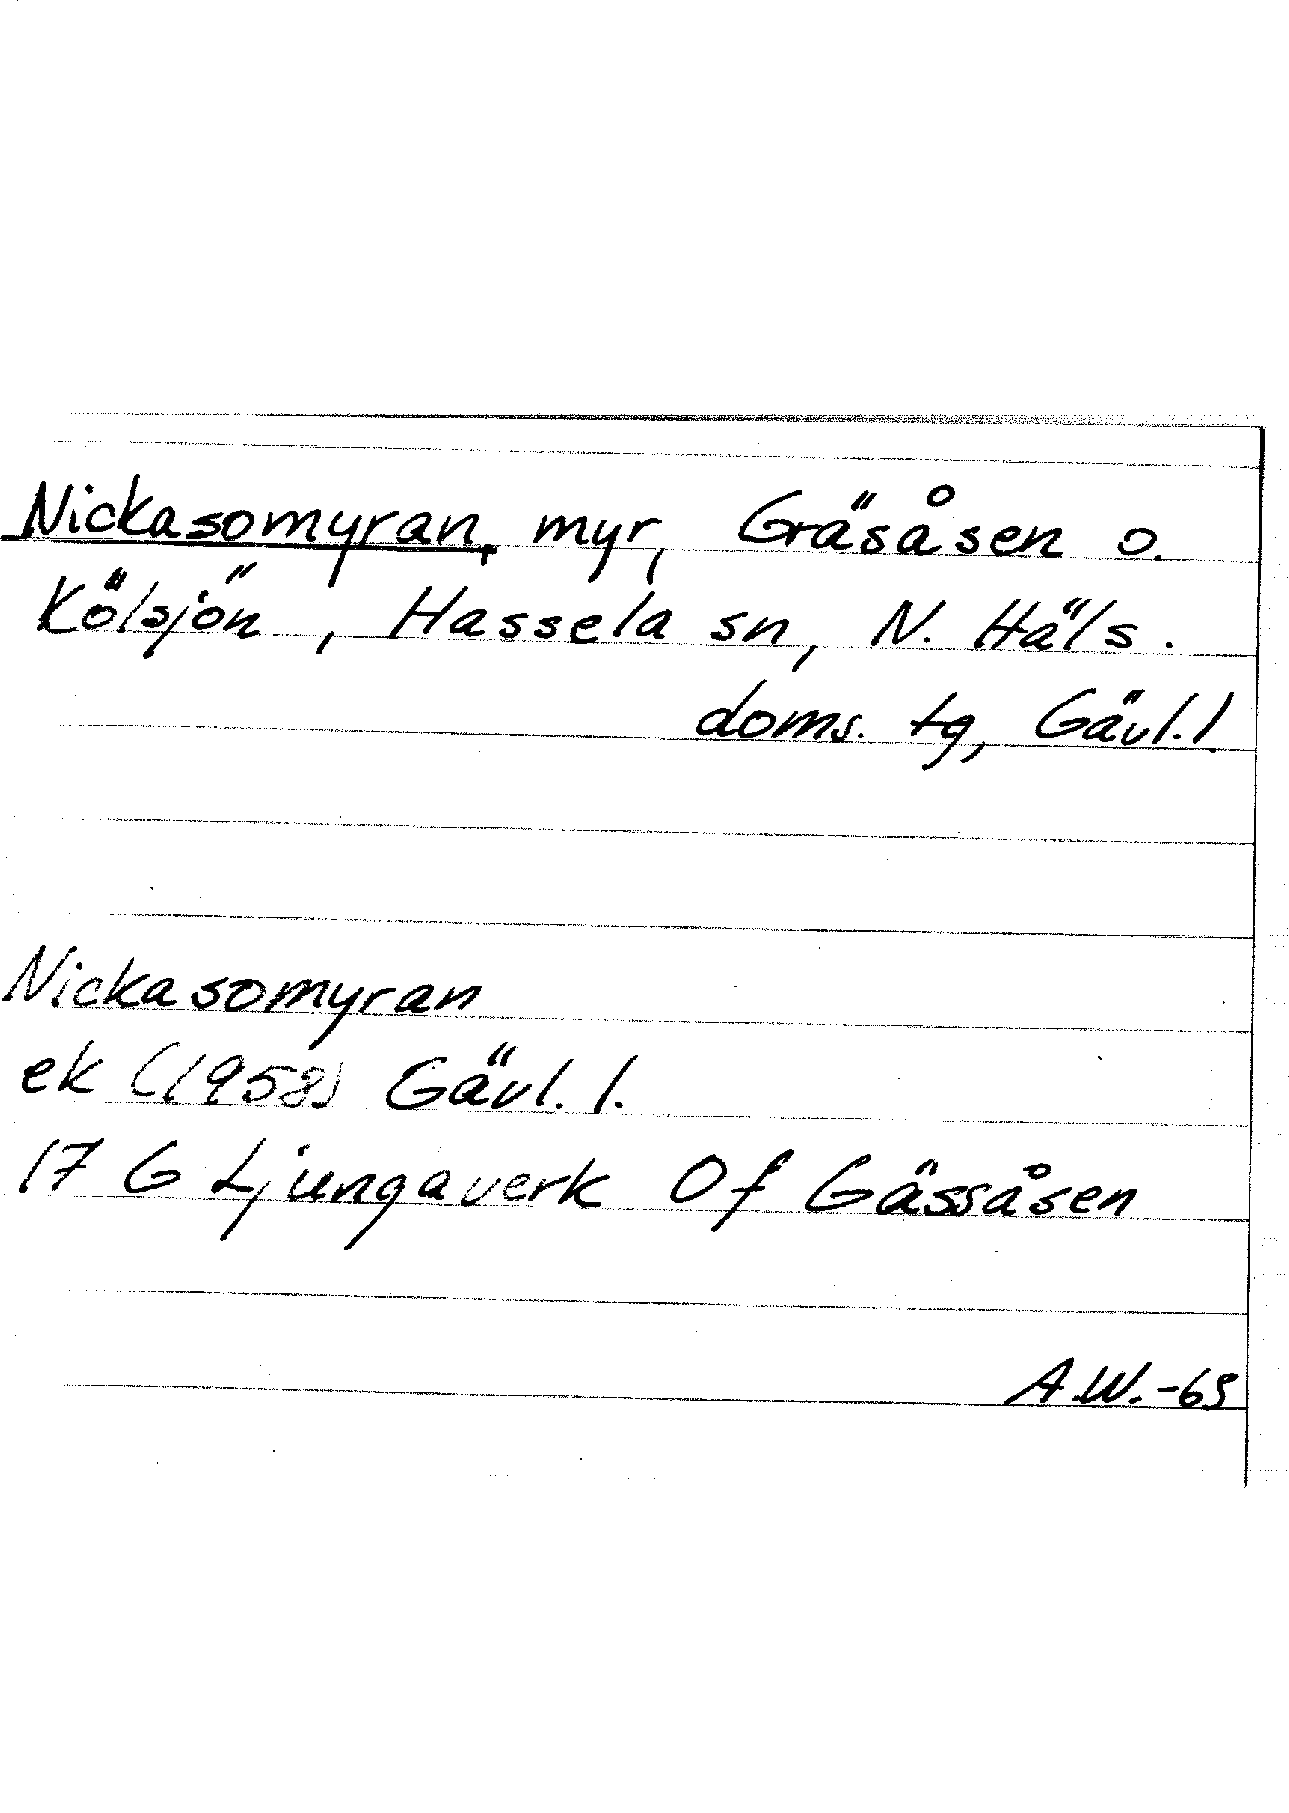 Nickasomyran, myr, Gräsåsen o.
Kölsjön, Hassela sn, N. Häls.
doms. tg, Gävl.l
Nickasomyran
ek (1958) Gävl. l.
17 G Ljungaverk Of Gässåsen
A.W.-65